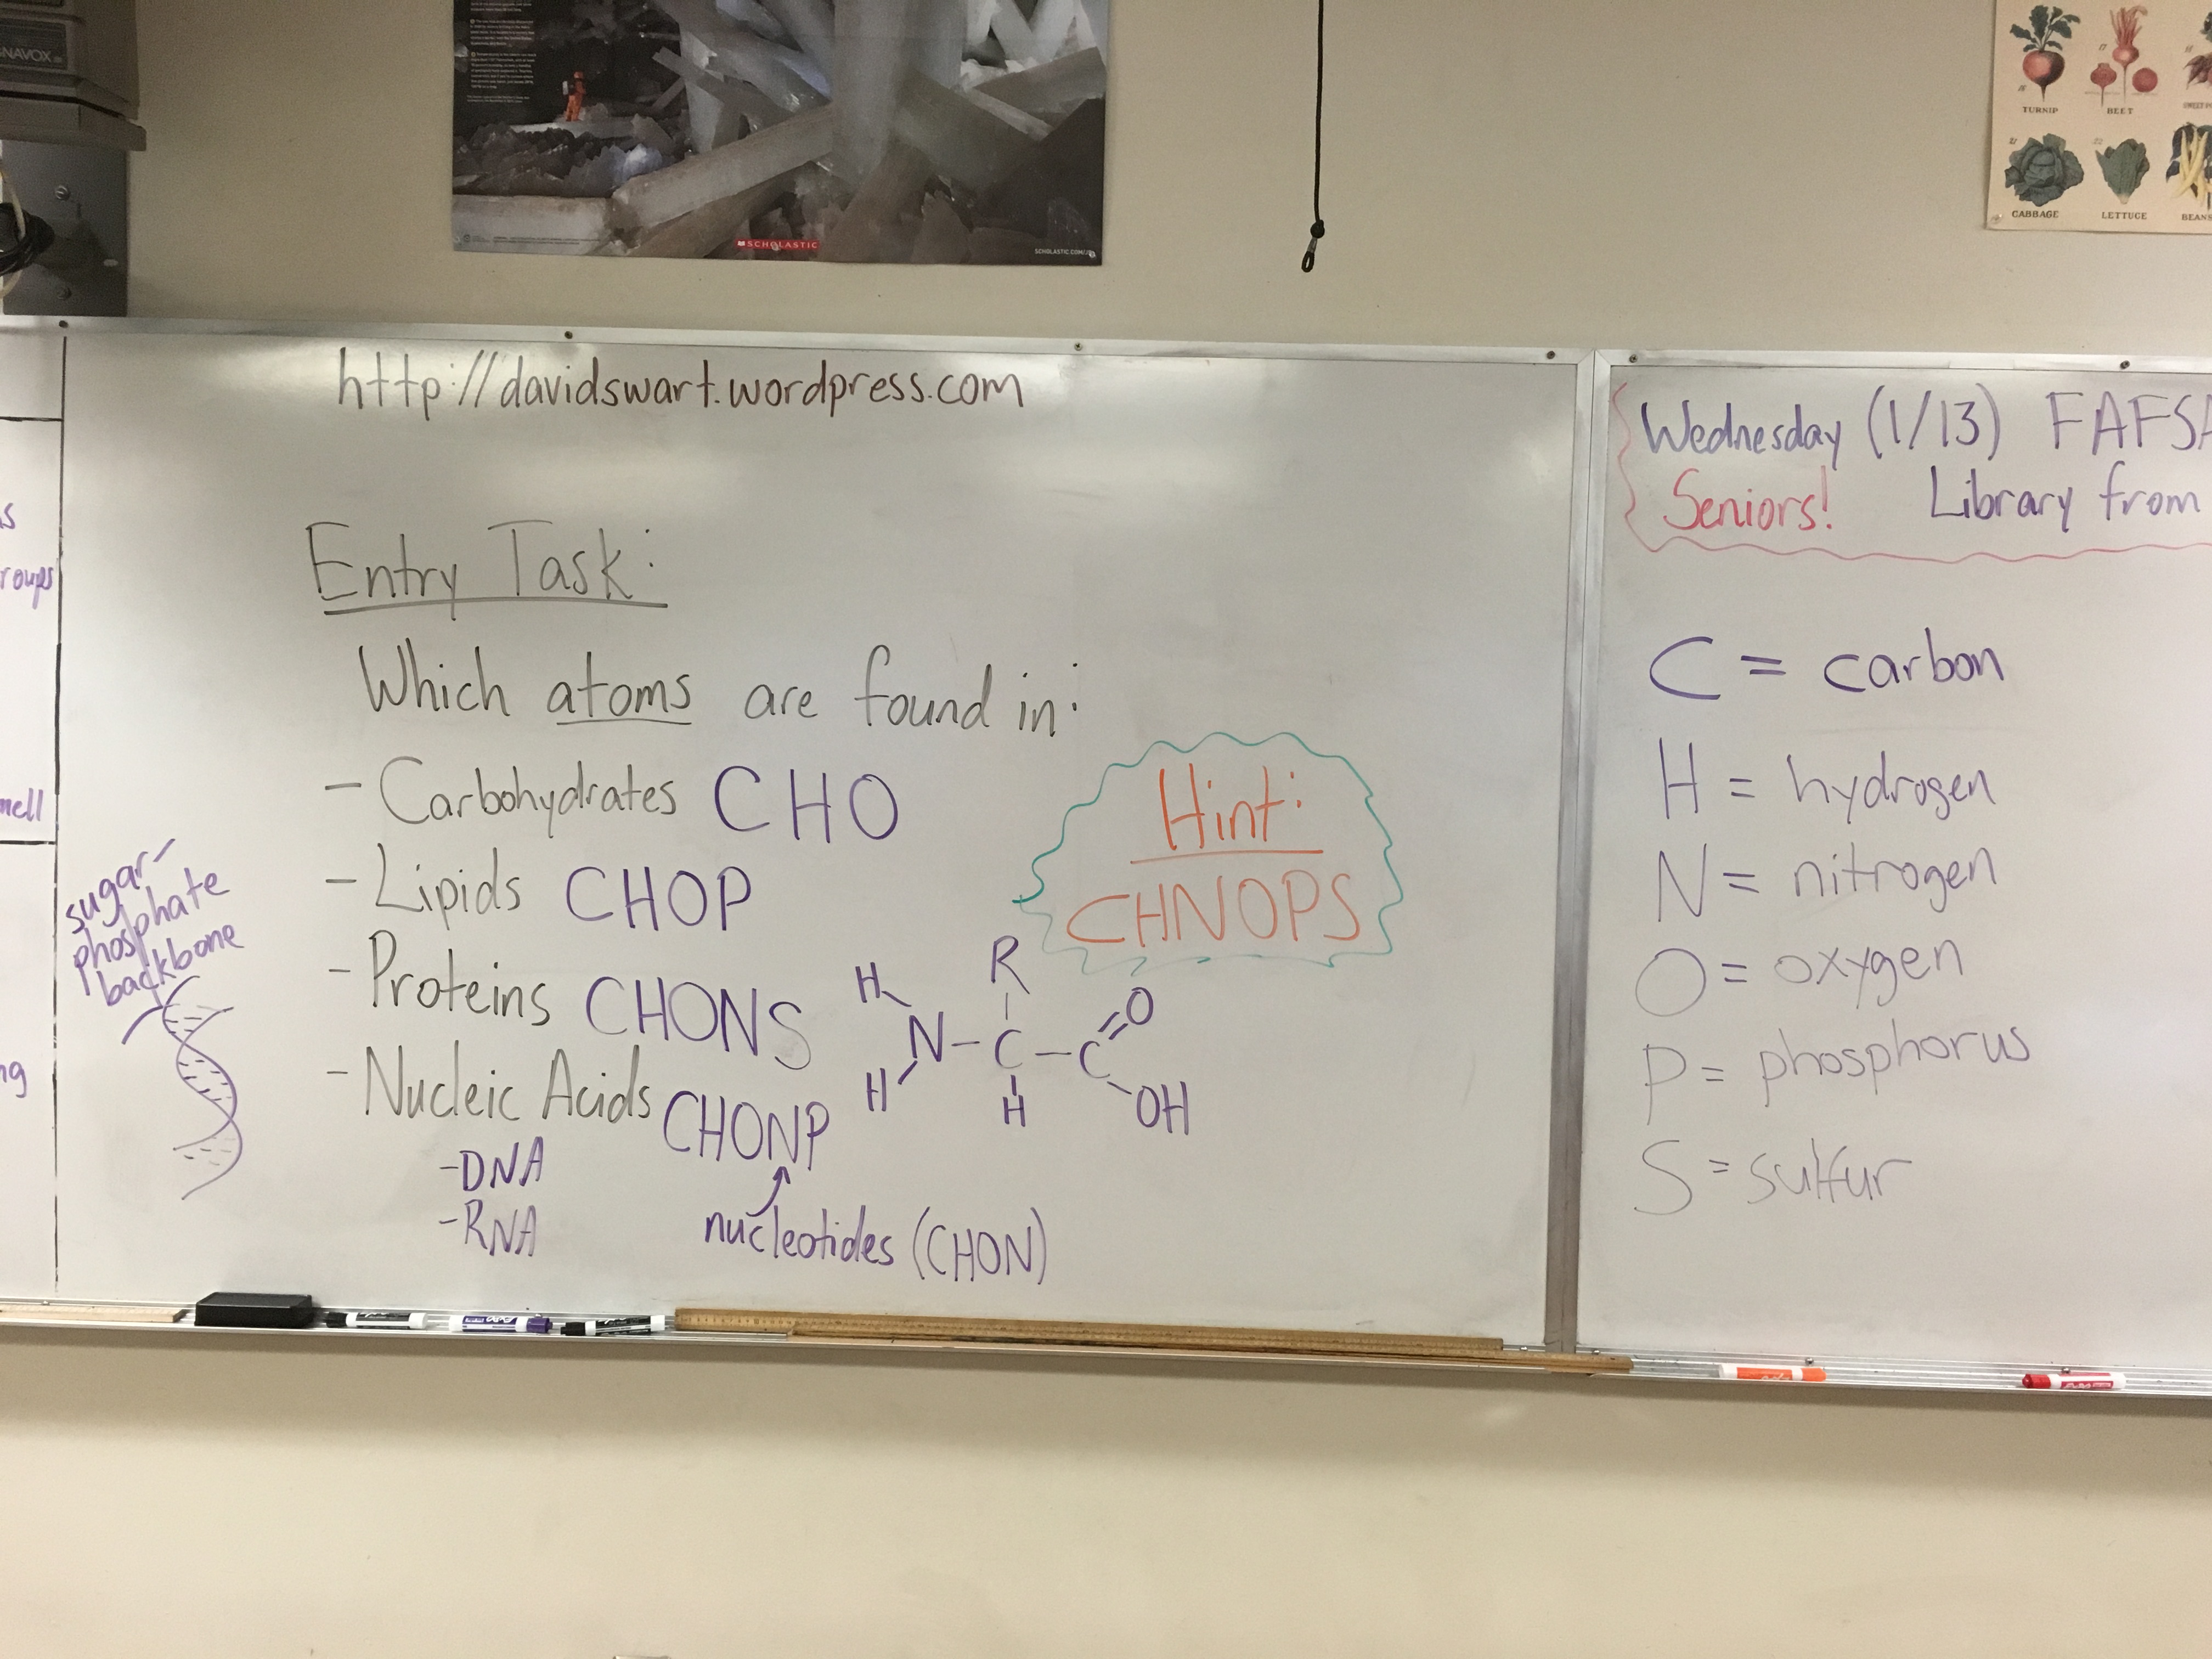 NAVOX
SCHOLASTIC
SCHOLASTIC.COM/
16
TURNIP
17
BEET
21
CABBAGE
22
LETTUCE
BEANS
http://davidswart.wordpress.com
Entry Task:
Which atoms are found in:
- Carbohydrates CHO
- Lipids CHOP
- Proteins CHONS
- Nucleic Acids CHONP
- DNA
- RNA
nucleotides (CHON)
Hint:
CHNOPS
R
H
O
N - C - C
H
H
OH
sugar-
phosphate
backbone
s
roups
mell
ng
Wednesday (1/13) FAFSA
Seniors! Library from
C = carbon
H = hydrogen
N = nitrogen
O = oxygen
P = phosphorus
S = sulfur